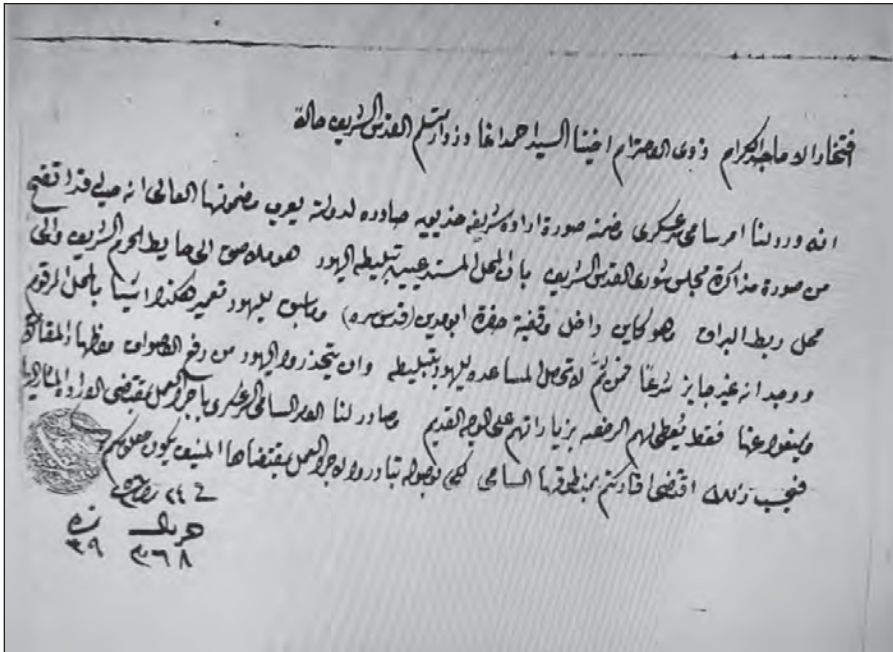 افتخار الاماجد الكرام ذوي الاحترام اخينا السيد احمد اغا دزدار متسلم القدس الشريف حالا
انه ورد لنا امر سامي سرعسكري مضمنه صورة ارادة شريفة خديوية صادره لدولته يعرب مضمونها العالي انه حيث قد اتضح
من صورة مذاكرة مجلس شورى القدس الشريف بان المحل المستدعيين تبليطه اليهود هو ملاصق الى حايط الحرم الشريف والى
محل ربط البراق وهو كاين داخل وقفية حضرة ابو مدين (قدس سره) وما سبق لليهود تعمير هكذا اشيا بالمحل المرقوم
ووجد انه غير جايز شرعا فمن ثم لا تحصل المساعده لليهود بتبليطه وان يتحذروا اليهود من رفع الاصوات واظهار المقالات
ويمنعوا عنها فقط يعطى لهم الرخصه بزياراتهم على الوجه القديم وصادر لنا الامر السامي السرعسكري باجرا العمل بمقتضى الارادة المشار اليها
فبحسب ذلك اقتضى افادتكم بمنطوقها السامي لكي بوصوله تبادروا لاجرا العمل بمقتضاها المنيف يكون معلومكم
في ٢٤